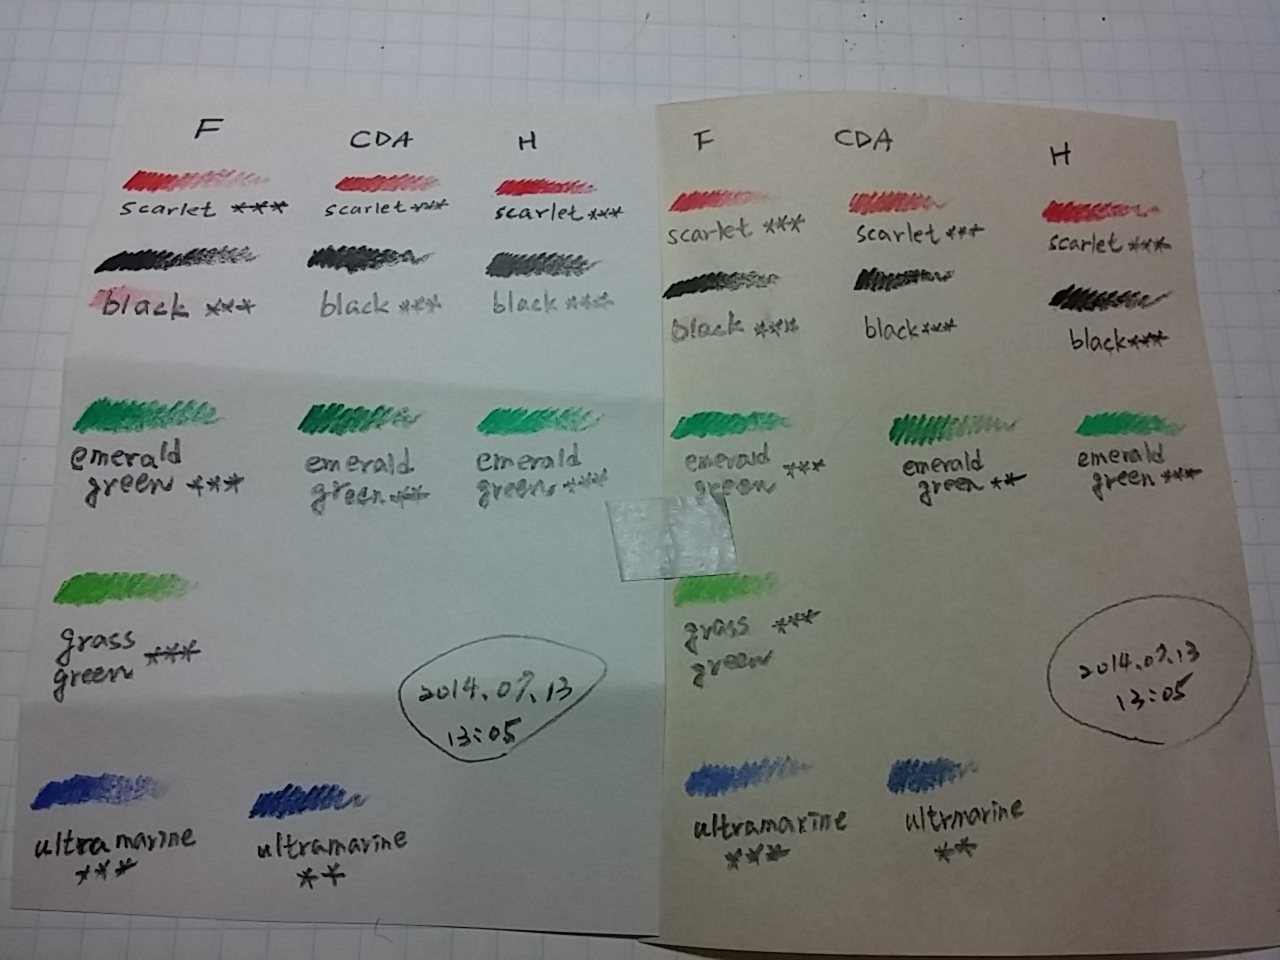 F CDA H
scarlet *** scarlet *** scarlet ***
black *** black *** black ***
emerald emerald emerald
green *** green ** green ***
grass
green ***
2014.07.13
13:05
ultramarine ultramarine
*** **
F CDA H
scarlet *** scarlet *** scarlet ***
black *** black *** black ***
emerald *** emerald emerald
green green ** green ***
grass ***
green
2014.07.13
13:05
ultramarine ultrmarine
*** **